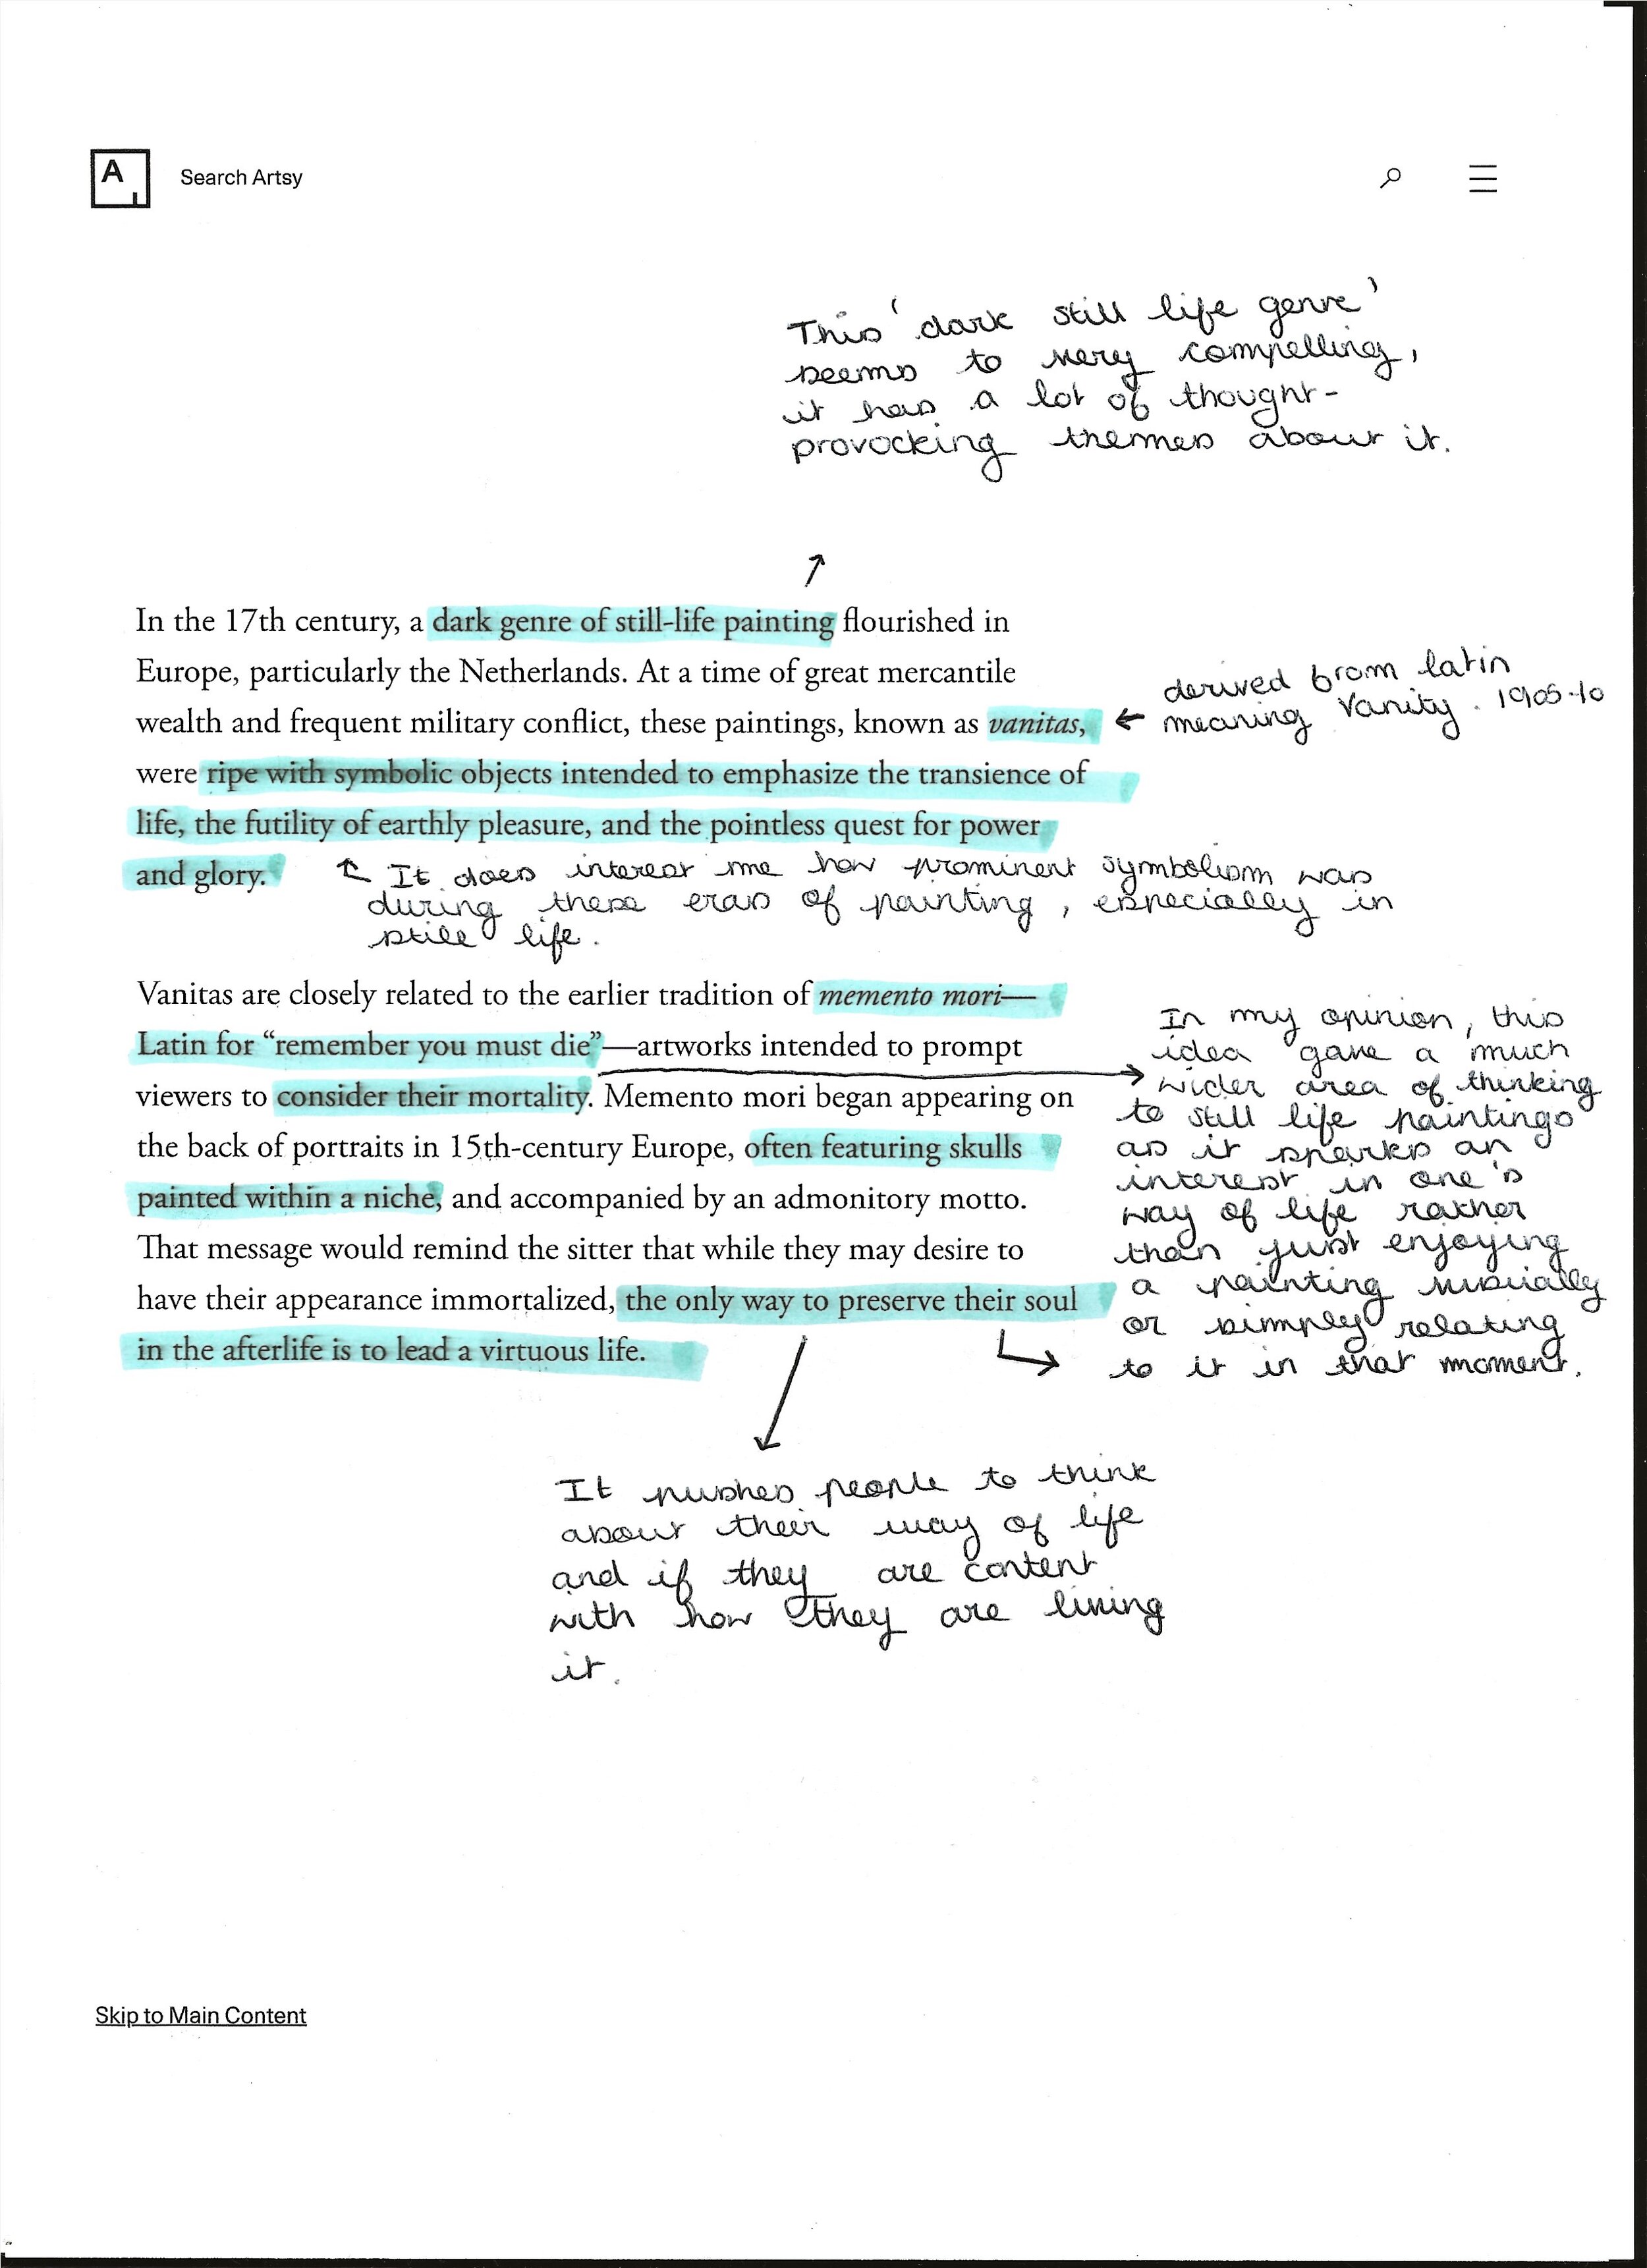 A
Search Artsy
This 'dark still life genre'
seems to very compelling,
it has a lot of thought-
provocking themes about it.
In the 17th century, a dark genre of still-life painting flourished in
Europe, particularly the Netherlands. At a time of great mercantile
wealth and frequent military conflict, these paintings, known as vanitas,
derived from latin
meaning Vanity. 1905-10
were ripe with symbolic objects intended to emphasize the transience of
life, the futility of earthly pleasure, and the pointless quest for power
and glory.
It does interest me how prominent symbolism was
during these eras of painting, especially in
still life.
Vanitas are closely related to the earlier tradition of memento mori—
Latin for “remember you must die”—artworks intended to prompt
viewers to consider their mortality. Memento mori began appearing on
the back of portraits in 15th-century Europe, often featuring skulls
painted within a niche, and accompanied by an admonitory motto.
That message would remind the sitter that while they may desire to
have their appearance immortalized, the only way to preserve their soul
in the afterlife is to lead a virtuous life.
In my opinion, this
idea gave a much
wider area of thinking
to still life paintings
as it sparks an
interest in one's
way of life rather
than just enjoying
a painting visually
or simply relating
to it in that moment.
It pushes people to think
about their way of life
and if they are content
with how they are living
it.
Skip to Main Content